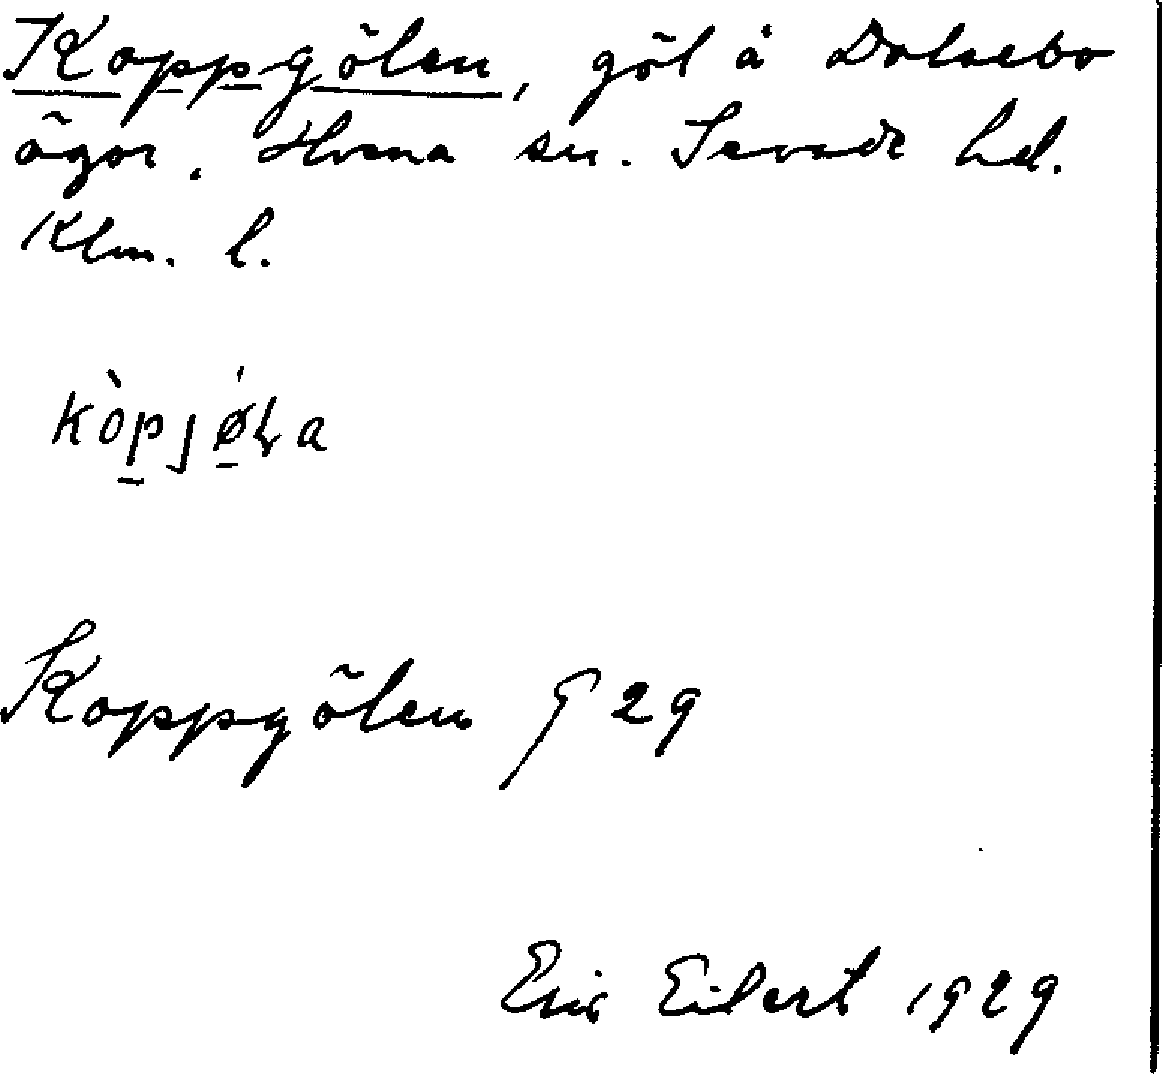 Koppgölen, göl å Dalsebo
ägor, Hvena sn. Sevede hd.
Klm. l.
kòpjø̀ɭa
Koppgölen 929
Eric Eilert 1929